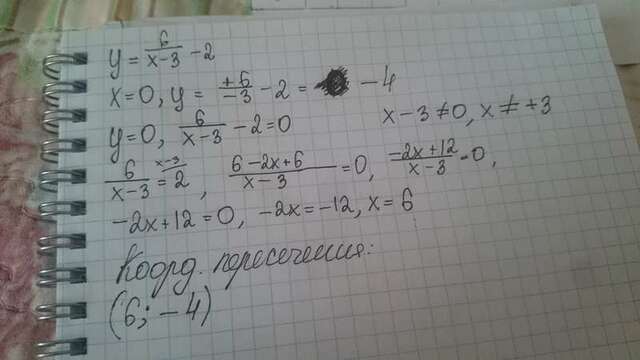 y = 6/(x-3) - 2
x=0, y = +6/-3 - 2 = -4
y=0, 6/(x-3) - 2=0 x-3≠0, x≠+3
6/(x-3) = 2 x-3, (6-2x+6)/(x-3) =0, (-2x+12)/(x-3) =0,
-2x+12=0, -2x=-12, x=6
Коорд. пересечения:
(6; -4)